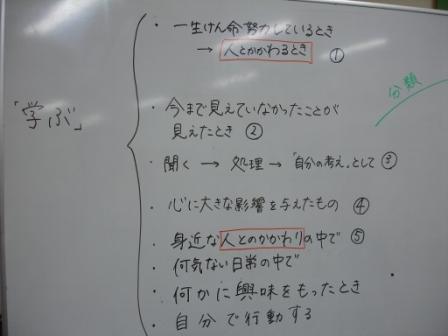 「学ぶ」
・一生けん命努力しているとき
→ 人とかかわるとき ①
・今まで見えていなかったことが
見えたとき ②
・聞く → 処理 → 「自分の考え」として ③
・心に大きな影響を与えたもの ④
・身近な人とのかかわりの中で ⑤
・何気ない日常の中で
・何かに興味をもったとき
・自分で行動する
分類